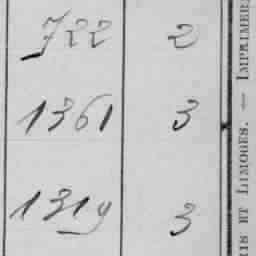 722 2
1361 3
1319 3
IS ET LIMOGES. — IMPRIMER